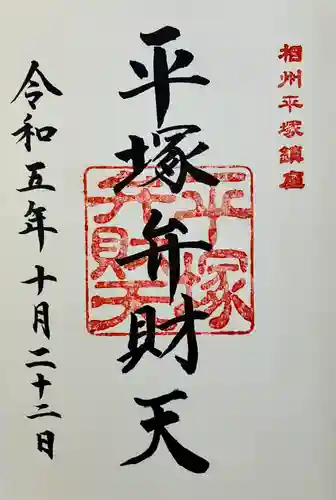 相州平塚鎮座
平塚弁財天
平塚
弁財天
令和五年十月二十二日